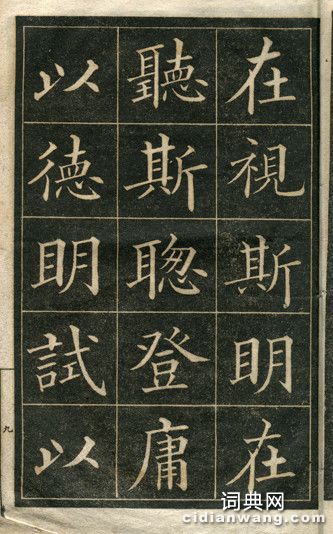 在視斯明在
聽斯聰登庸
以德明試以
九
词典网
cidianwang.com